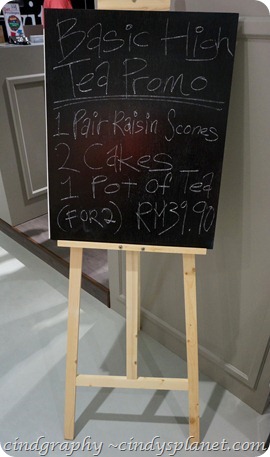 Basic High
Tea Promo
1 Pair Raisin Scones
2 Cakes
1 Pot of Tea
(FOR 2) RM39.90
cindgraphy ~cindysplanet.com